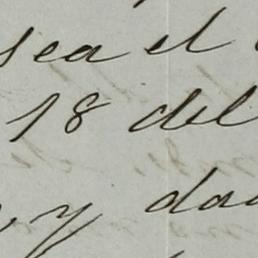 sea el
18 del
y da